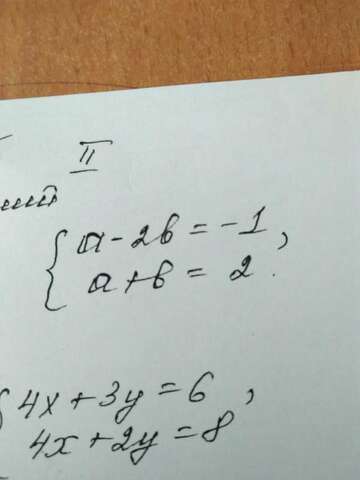 II
a - 2b = -1,
a + b = 2.
4x + 3y = 6,
4x + 2y = 8